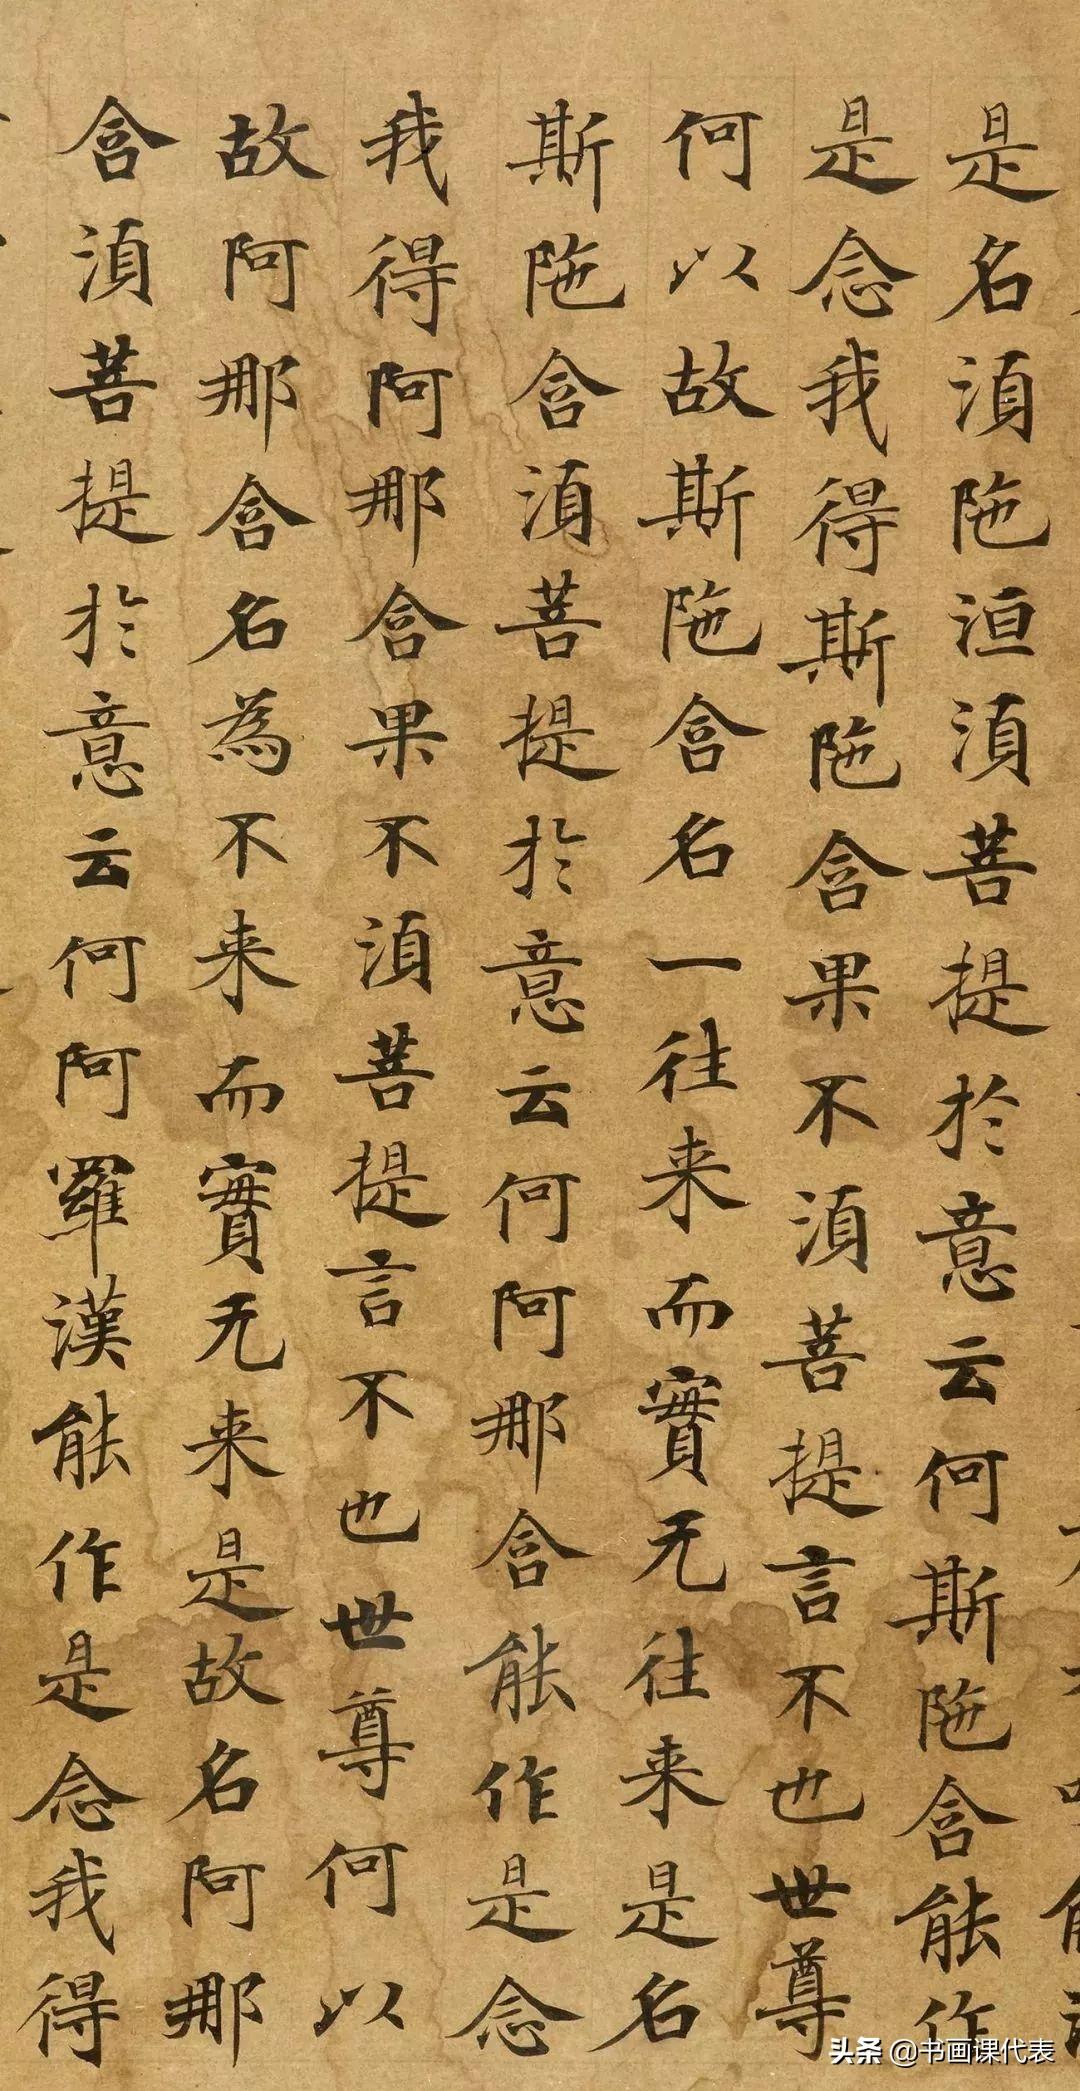 是名湏陁洹湏菩提於意云何斯陁含能作
是念我得斯陁含果不湏菩提言不也世尊
何以故斯陁含名一往来而實无往来是名
斯陁含湏菩提於意云何阿那含能作是念
我得阿那含果不湏菩提言不也世尊何以
故阿那含名為不来而實无来是故名阿那
含湏菩提於意云何阿羅漢能作是念我得
头条 @书画课代表